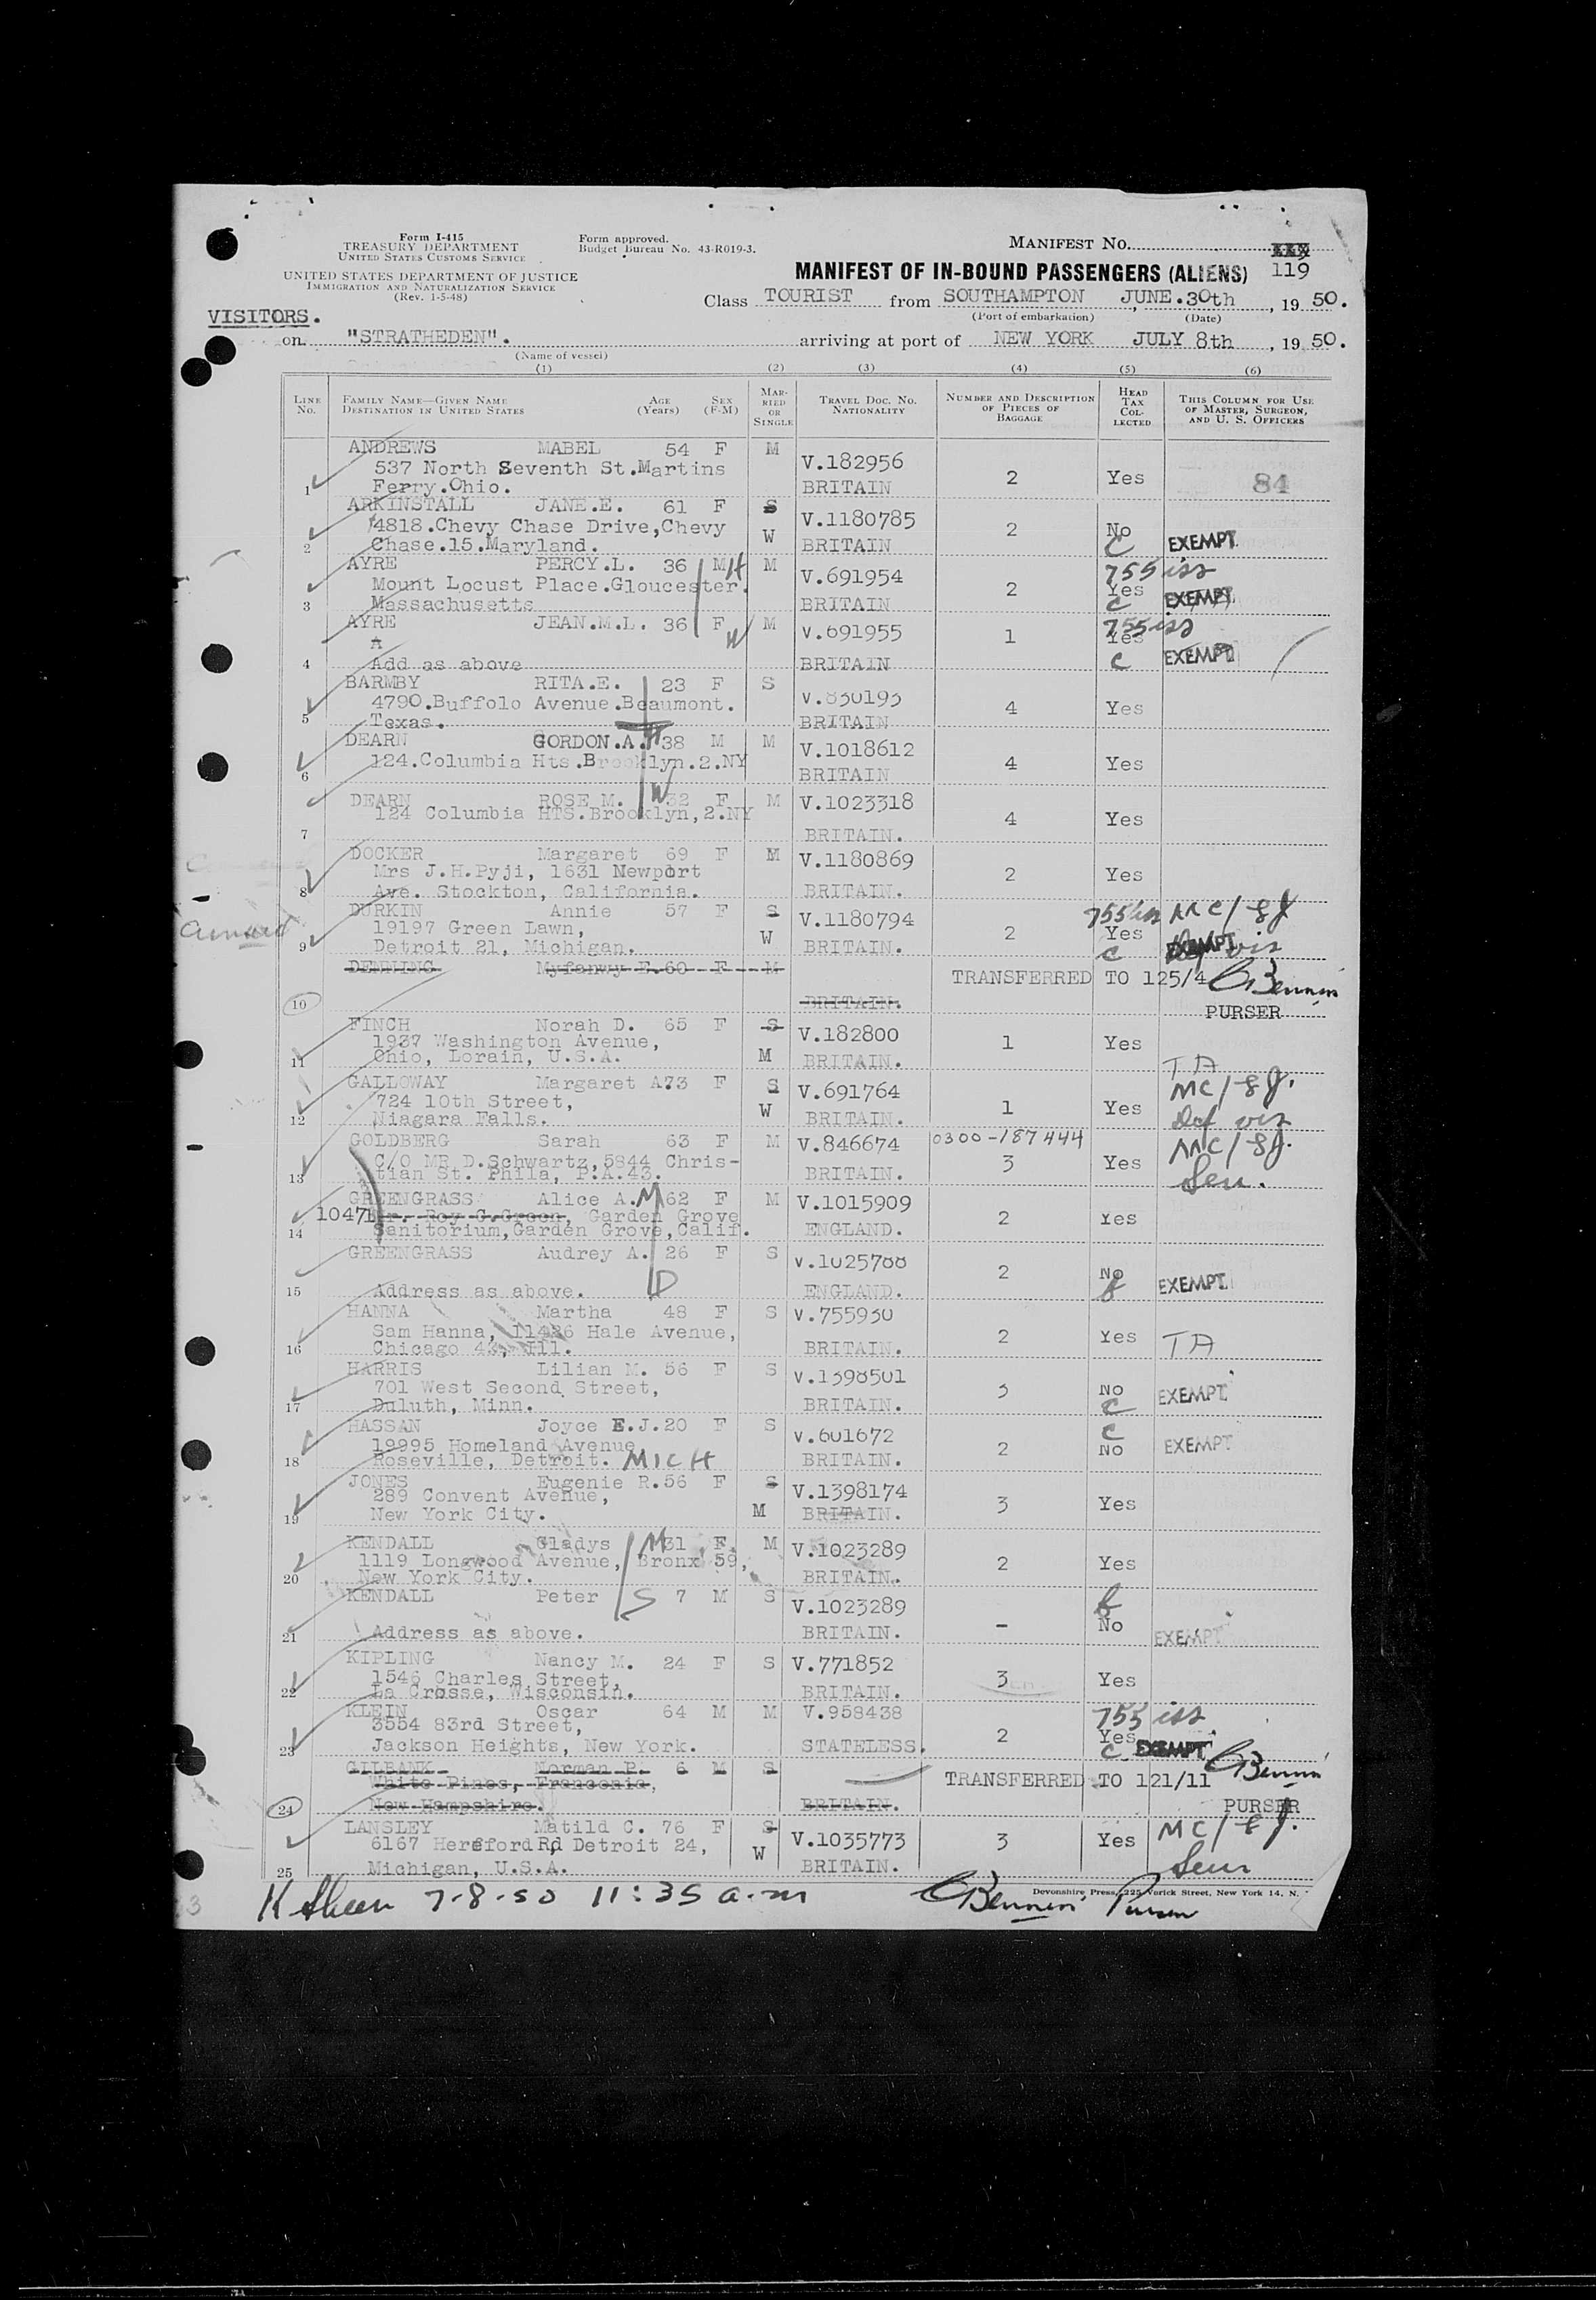 Form I-415
TREASURY DEPARTMENT
UNITED STATES CUSTOMS SERVICE
UNITED STATES DEPARTMENT OF JUSTICE
IMMIGRATION AND NATURALIZATION SERVICE
(Rev. 1-5-48)
Form approved.
Budget Bureau No. 43-R019-3.
MANIFEST NO.
MANIFEST OF IN-BOUND PASSENGERS (ALIENS) 119
Class TOURIST from SOUTHAMPTON, JUNE.30th, 1950.
(Port of embarkation) (Date)
VISITORS.
on "STRATHEDEN". arriving at port of NEW YORK JULY 8th, 1950.
(Name of vessel)
(1) (2) (3) (4) (5) (6)
LINE NO. FAMILY NAME—GIVEN NAME DESTINATION IN UNITED STATES AGE (Years) SEX (F-M) MARRIED OR SINGLE TRAVEL DOC. NO. NATIONALITY NUMBER AND DESCRIPTION OF PIECES OF BAGGAGE HEAD TAX COLLECTED THIS COLUMN FOR USE OF MASTER, SURGEON, AND U. S. OFFICERS
ANDREWS MABEL 54 F M V.182956
537 North Seventh St.Martins 2 Yes 84
1 Ferry.Ohio. BRITAIN
ARKINSTALL JANE.E. 61 F S V.1180785
4818.Chevy Chase Drive,Chevy W 2 No
2 Chase.15.Maryland. BRITAIN C EXEMPT
AYRE PERCY.L. 36 M H M V.691954 755 iss
Mount Locust Place.Gloucester. 2 Yes
3 Massachusetts BRITAIN C EXEMPT
AYRE JEAN.M.L. 36 F W M V.691955 1 755 iss
A Yes
4 Add as above BRITAIN C EXEMPT
BARMBY RITA.E. 23 F S
4790.Buffolo Avenue.Beaumont. 4 Yes
5 Texas. BRITAIN
DEARN GORDON.A. H 38 M M V.1018612
6 124.Columbia Hts.Brooklyn.2.NY BRITAIN 4 Yes
DEARN ROSE M. W 32 F M V.1023318
124 Columbia HTS.Brooklyn,2.NY 4 Yes
7 BRITAIN.
DOCKER Margaret 69 F M V.1180869
Mrs J.H.Pyji, 1631 Newport 2 Yes
8 Ave. Stockton, California. BRITAIN.
DURKIN Annie 57 F S V.1180794
19197 Green Lawn, W 2 Yes
9 Detroit 21, Michigan. BRITAIN. C EXEMPT
DENNING Myfanwy E. 60 F M TRANSFERRED TO 125/4
10 BRITAIN. PURSER
FINCH Norah D. 65 F S V.182800
1937 Washington Avenue, 1 Yes
11 Ohio, Lorain, U.S.A. M BRITAIN. TA
GALLOWAY Margaret A.73 F S V.691764
724 10th Street, W 1 Yes
12 Niagara Falls. BRITAIN.
GOLDBERG Sarah 63 F M V.846674 0300-187444
C/O MR D.Schwartz,5844 Chris- 3 Yes
13 tian St. Phila, P.A.43. BRITAIN.
GREENGRASS Alice A. M 62 F M V.1015909
1047 Mr. Roy C.Green, Garden Grove 2 Yes
14 Sanitorium,Garden Grove,Calif. ENGLAND.
GREENGRASS Audrey A. 26 F S
2 No
15 Address as above. D ENGLAND. EXEMPT
HANNA Martha 48 F S V.755930
Sam Hanna, 11426 Hale Avenue, 2 Yes TA
16 Chicago 43, Ill. BRITAIN.
HARRIS Lilian M. 56 F S V.1398501
701 West Second Street, 3 No EXEMPT
17 Duluth, Minn. BRITAIN. C
HASSAN Joyce E.J.20 F S V.601672 C
19995 Homeland Avenue 2 No EXEMPT
18 Roseville, Detroit. MICH BRITAIN.
JONES Eugenie R.56 F S V.1398174
289 Convent Avenue, 3 Yes
19 New York City. M BRITAIN.
KENDALL Gladys M 31 F. M V.1023289
1119 Longwood Avenue, Bronx 59, 2 Yes
20 New York City. BRITAIN.
KENDALL Peter S 7 M S V.1023289
- No
21 Address as above. BRITAIN. EXEMPT
KIPLING Nancy M. 24 F S V.771852
1546 Charles Street, 3 Yes
22 La Crosse, Wisconsin. BRITAIN.
KLEIN Oscar 64 M M V.958438 755 iss
3554 83rd Street, 2 Yes
23 Jackson Heights, New York. STATELESS. C EXEMPT
GILBANK Norman P. 6 M S TRANSFERRED TO 121/11
White Pines, Franconia,
24 New Hampshire. BRITAIN. PURSER
LANSLEY Matild C. 76 F S
6167 Hereford Rd, Detroit 24, W V.1035773 3 Yes
25 Michigan, U.S.A. BRITAIN.
7-8-50 11:35 a.m
Devonshire Press, 225 Varick Street, New York 14, N.